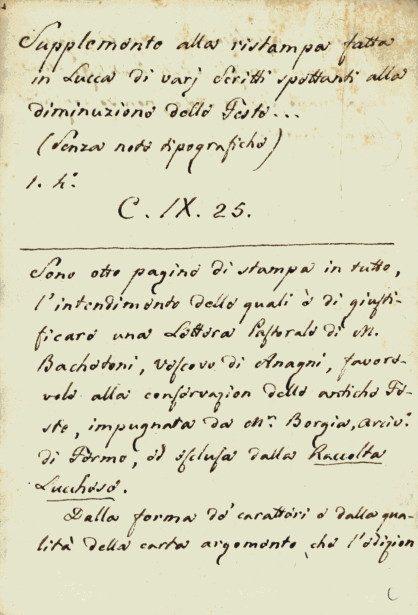 Supplemento alla ristampa fatta
in Lucca di varj Scritti spettanti alla
diminuzione delle Feste...
(Senza note tipografiche)
C. IX. 25.
Sono otto pagine di stampa in tutto,
l'intendimento delle quali è di giusti-
ficare una Lettera Pastorale di M.
Bachetoni, Vescovo di Anagni, favore-
vole alla conservazion delle antiche Fe-
ste, impugnata da Mr. Borgia, Arciv.o
di Fermo, ed esclusa dalla Raccolta
Lucchese.
Dalla forma de' caratteri e dalla qua-
lità della carta argomento, che l'edizion